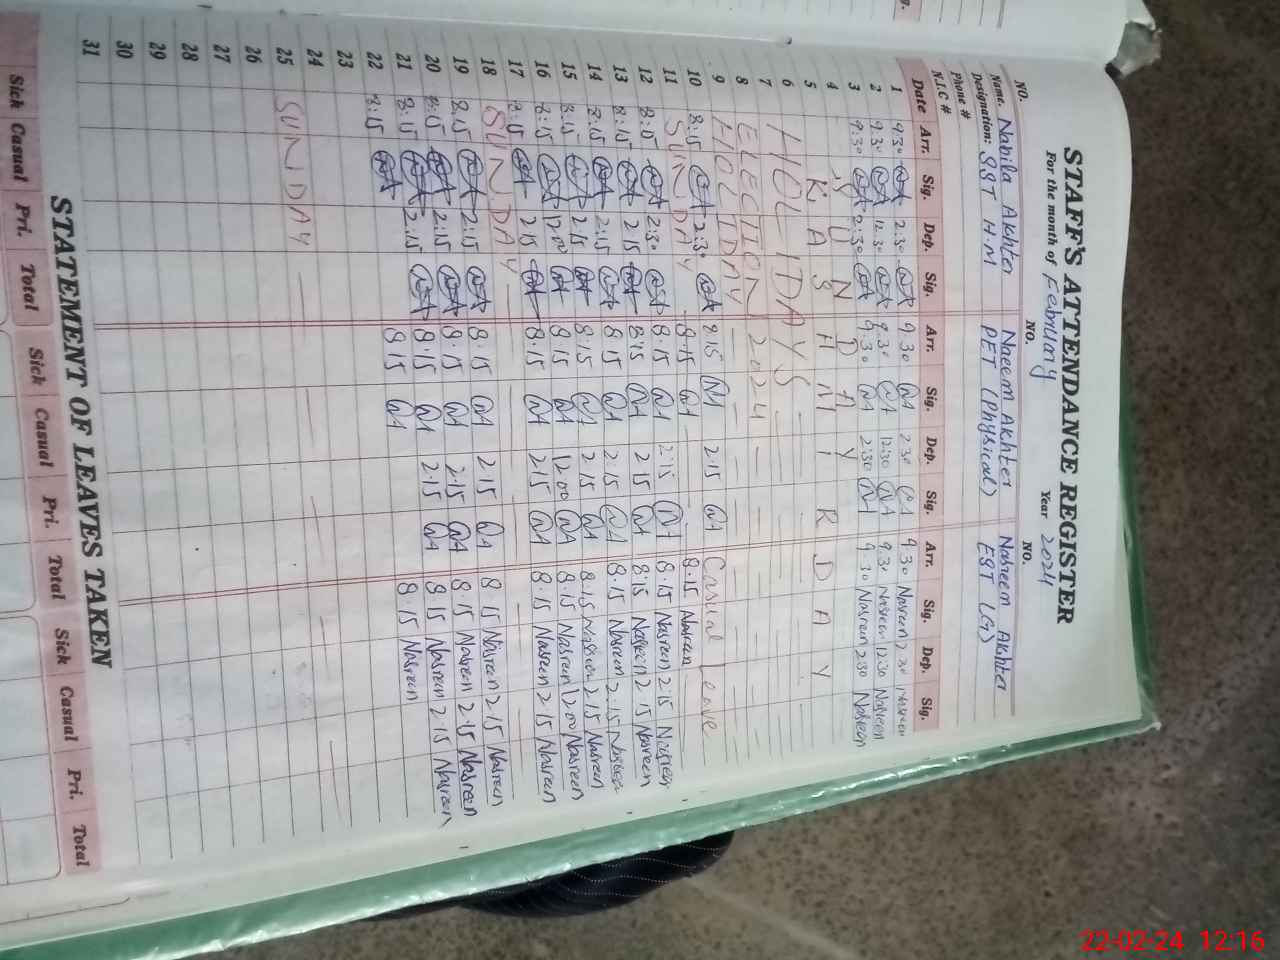 STAFF'S ATTENDANCE REGISTER
For the month of Februury Year 2024
NO. NO. NO.
Name. Nabila Akhter Naeem Akhter Nasreem Akhter
Designation: SST H.M PET (Physical) EST (G)
Phone #
N.I.C #
Date Arr. Sig. Dep. Sig. Arr. Sig. Dep. Sig. Arr. Sig. Dep. Sig.
1 9:30 2:30 9 30 2 30 9 30 Nasreen 2 30 Nasreen
2 9.30 12.30 9.30 12:30 9.30 Nasreen 12:30 Nasreen
3 9:30 2:30 9.30 2:30 9 30 Nasreen 2:30 Nasreen
4 SUNDAY
5 KASHMIR DAY
6 HOLIDAYS
7 ELECTION 2024
8 HOLIDAY
9 8:15 2:30 8:15 2.15 Casual Leave
10 SUNDAY 8.15 8.15 Nasreen
11 8.15 2:15 8.15 Nasreen 2:15 Nasreen
12 8:15 2:30 8:15 2 15 8:15 Nasreen 2.15 Nasreen
13 8:15 2 15 8 15 2:15 8.15 Nasreen 2.15 Nasreen
14 8:15 2:15 8:15 2 15 8.15 Nasreen 2.15 Nasreen
15 8:15 2:15 8 15 12.00 8.15 Nasreen 12.00 Nasreen
16 8:15 12.00 8.15 2.15 8.15 Nasreen 2.15 Nasreen
17 8:15 2 15
18 SUNDAY 8.15 2.15 8 15 Nasreen 2.15 Nasreen
19 8.15 2:15 8.15 2.15 8.15 Nasreen 2.15 Nasreen
20 8:15 2:15 8.15 2.15 8 15 Nasreen 2.15 Nasreen
21 8:15 2:15 8 15 8.15 Nasreen
22 8:15
23
24
25 SUNDAY
26
27
28
29
30
31
STATEMENT OF LEAVES TAKEN
Sick Casual Pri. Total Sick Casual Pri. Total Sick Casual Pri. Total
22-02-24 12:16